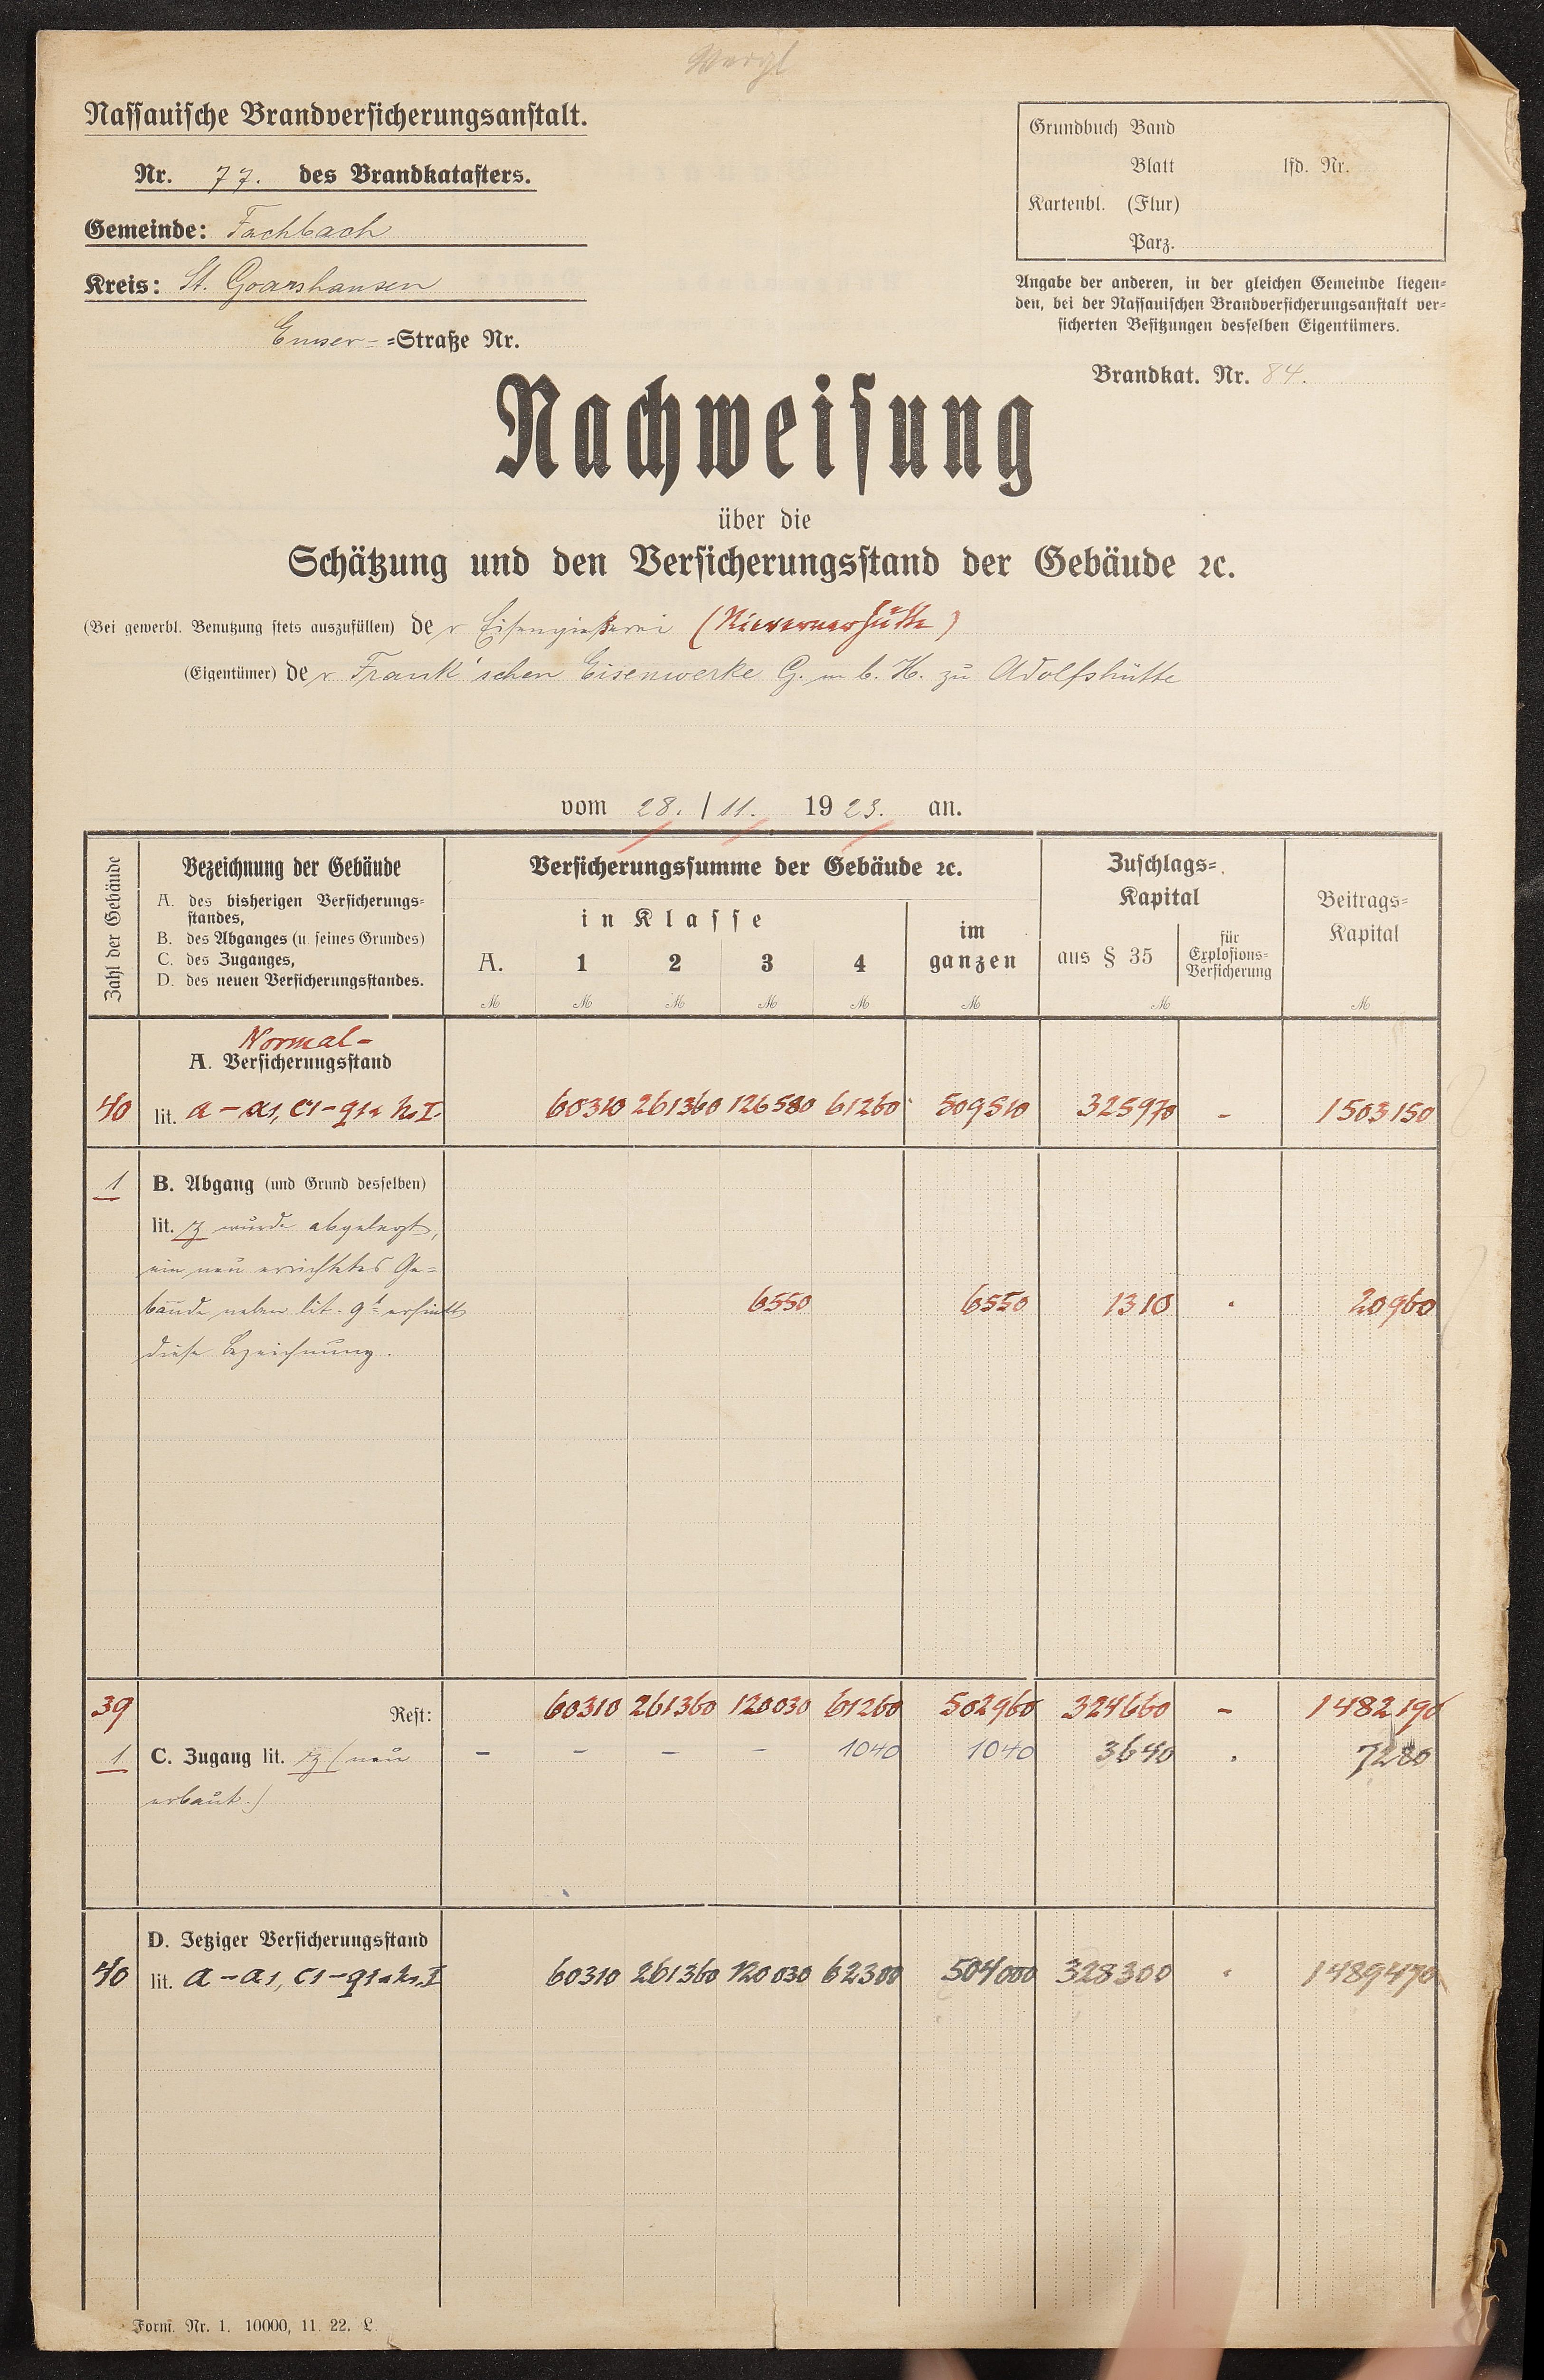 Nassauische Brandversicherungsanstalt.
Nr. 77. des Brandkatasters.
Gemeinde: Fachbach
Kreis: St. Goarshausen
Emser-=Straße Nr.
Grundbuch Band
Blatt lfd. Nr.
Kartenbl. (Flur)
Parz.
Angabe der anderen, in der gleichen Gemeinde liegen=
den, bei der Nassauischen Brandversicherungsanstalt ver=
sicherten Besitzungen desselben Eigentümers.
Brandkat. Nr. 84.
Nachweisung
über die
Schätzung und den Versicherungsstand der Gebäude ꝛc.
(Bei gewerbl. Benutzung stets auszufüllen) de r Eisengießerei (Nievernerhütte)
(Eigentümer) de r Frank'schen Eisenwerke G. m b. H. zu Adolfshütte
vom 28. / 11. 1923. an.
Zahl der Gebäude
Bezeichnung der Gebäude
A. des bisherigen Versicherungs=
standes,
B. des Abganges (u. seines Grundes)
C. des Zuganges,
D. des neuen Versicherungsstandes.
Versicherungssumme der Gebäude ꝛc.
in Klasse
A. 1 2 3 4
im
ganzen
Zuschlags=
Kapital
aus § 35
für
Explosions=
Versicherung
Beitrags=
Kapital
M M M M M M M M
Normal-
A. Versicherungsstand
40 lit. a - a1, c1 - q1 60310 261360 126580 61260 509510 325970 - 1503150
1 B. Abgang (und Grund desselben)
lit. z wurde abgelegt,
ein neu errichtetes Ge=
bäude neben lit. g1 erhielt 6550 6550 1310 . 20960
diese Bezeichnung.
39 Rest: 60310 261360 120030 61260 502960 324660 - 1482190
1 C. Zugang lit. z (neu - - - - 1040 1040 3640 . 7280
erbaut.)
D. Jetziger Versicherungsstand
40 lit. a - a1, c1 - q1 60310 261360 120030 62300 504000 328300 . 1489470
Form. Nr. 1. 10000, 11. 22. L.